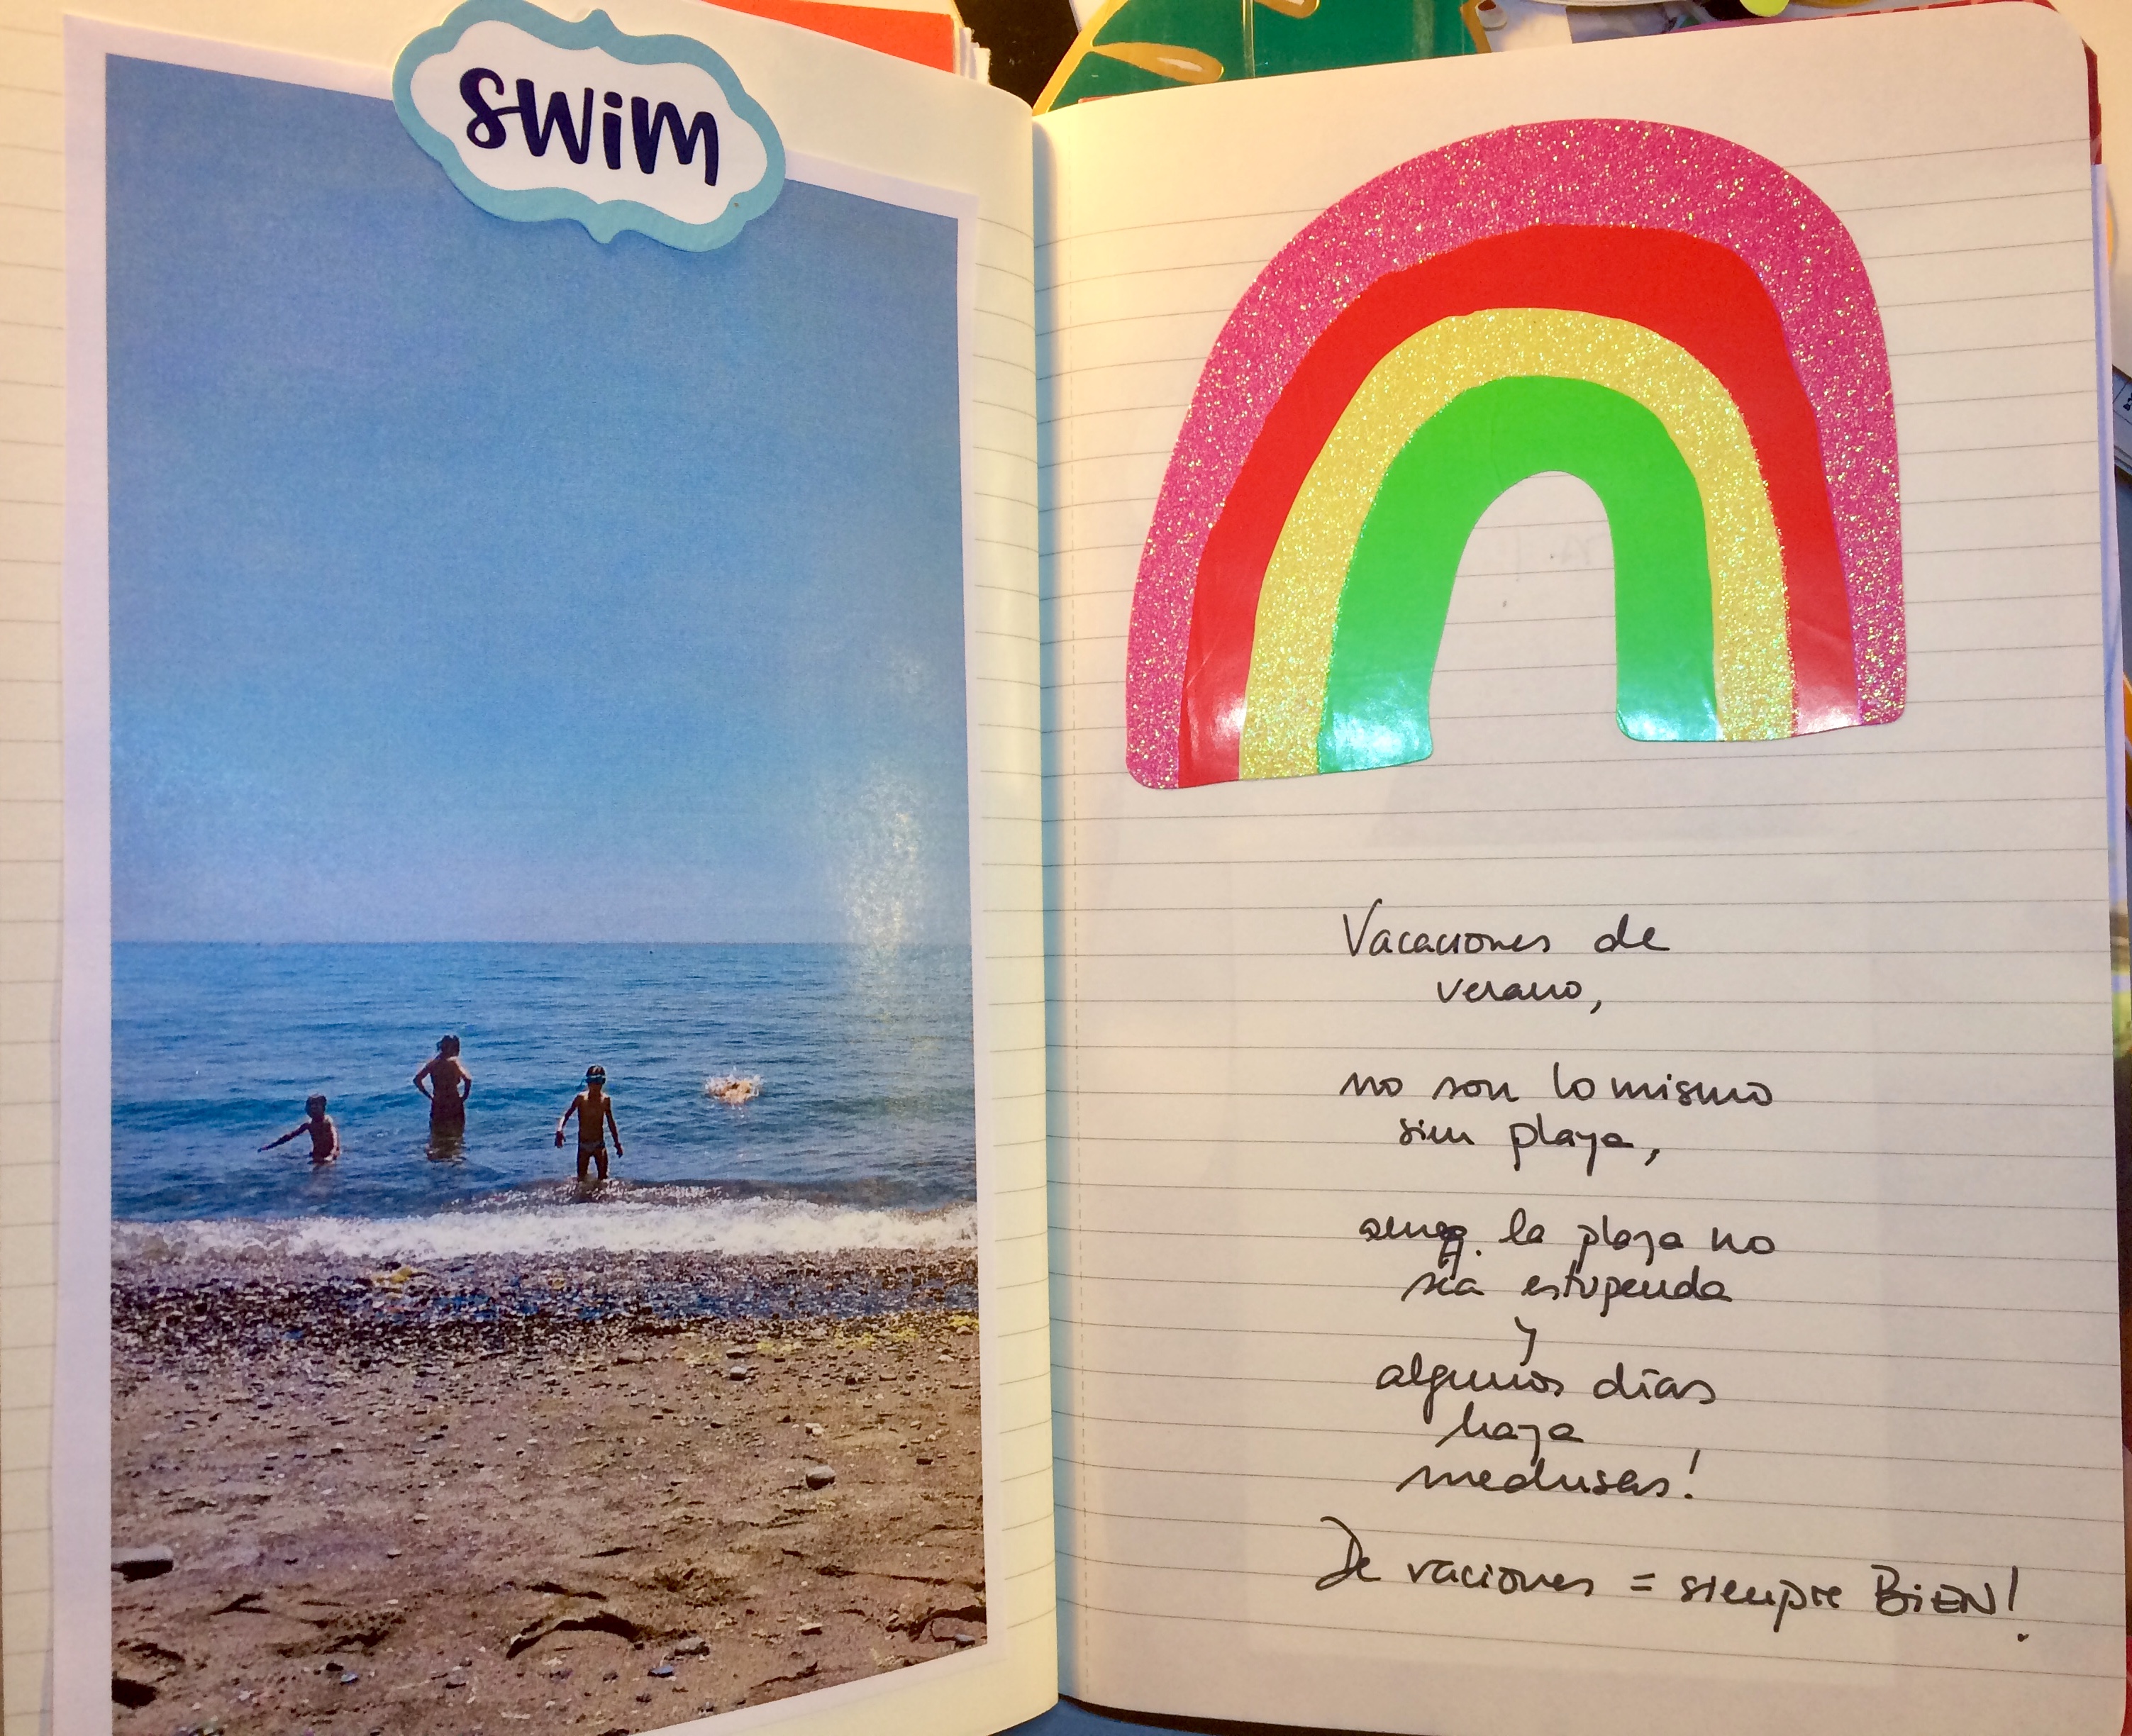 swim
Vacaciones de
verano,
no son lo mismo
sin playa,
aunq. la playa no
sea estupenda
y
algunos días
haya
medusas!
De vaciones = siempre BiEN!